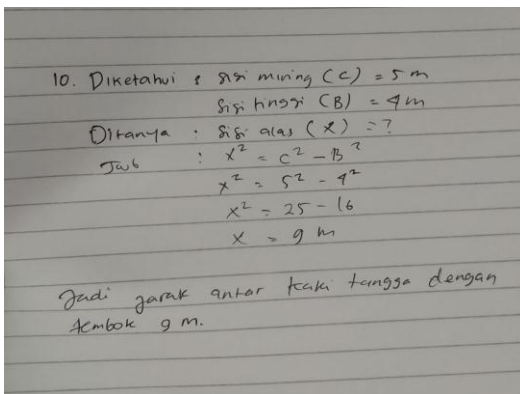 10. Diketahui : sisi miring (C) = 5 m
Sisi tinggi (B) = 4 m
Ditanya : Sisi alas (x) = ?
Jwb : x² = c² - B²
x² = 5² - 4²
x² = 25 - 16
x = 9 m
Jadi jarak antar kaki tangga dengan
tembok 9 m.